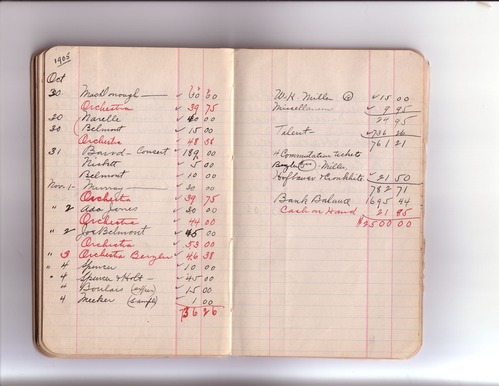 1905
Oct
30 MacDonough — 00
Orchestra 39 75
20 Narelle 00
30 Belmont 15 00
Orchestra 48 38
31 00
5 00
Belmont 10 00
Nov. 1 - Murray — 30 00
Orchestra 39 75
" 2 Ada Jones 30 00
Orchestra 44 00
" 2 Joe Belmont 45 00
Orchestra 53 00
" 3 Orchestra 46 38
" 4 Spencer 10 00
" 4 Spencer & Holt — 45 00
" 15 00
4 Meeker (sample) 1 00
736 26
W.H. Miller 15 00
Miscellaneous 9 95
24 95
Talent 736 26
761 21
4 Commutation tickets
Miller
Hofbauer & Cronkhite 21 50
782 71
Bank Balance 1695 44
Cash on Hand 21 85
$2500 00